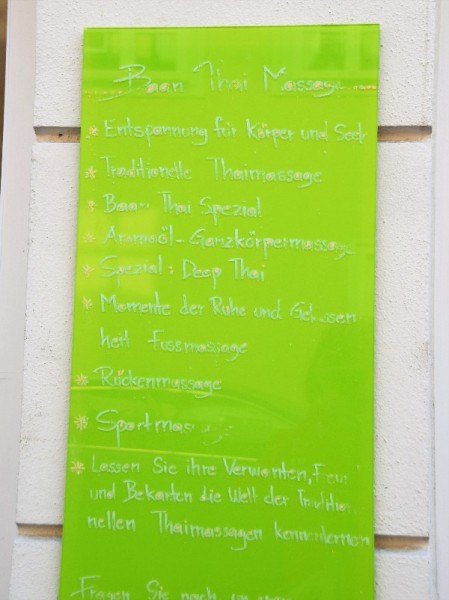 Baan Thai Massage
* Entspannung für Körper und Seele
* Traditionelle Thaimassage
* Baan Thai Spezial
* Aromaöl - Ganzkörpermassage
* Spezial : Deep Thai
* Momente der Ruhe und Gelassen
heit Fussmassage
* Rückenmassage
* Sportmassage
* Lassen Sie ihre Verwanten,
und Bekanten die Welt der Traditio
nellen Thaimassagen kennenlernen
Fragen Sie nach